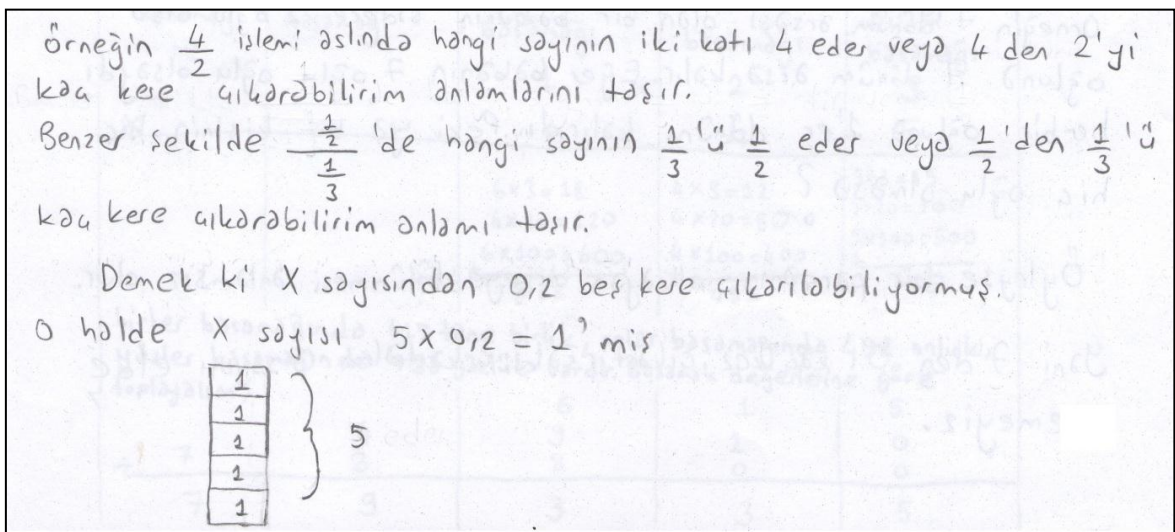 Örneğin 4/2 işlemi aslında hangi sayının iki katı 4 eder veya 4 den 2'yi
kaç kere çıkarabilirim anlamlarını taşır.
Benzer şekilde 1/2 / 1/3 de hangi sayının 1/3'ü 1/2 eder veya 1/2'den 1/3'ü
kaç kere çıkarabilirim anlamı taşır.
Demek ki X sayısından 0,2 beş kere çıkarılabiliyormuş.
O halde X sayısı 5 x 0,2 = 1' miş
1
1
1 5
1
1